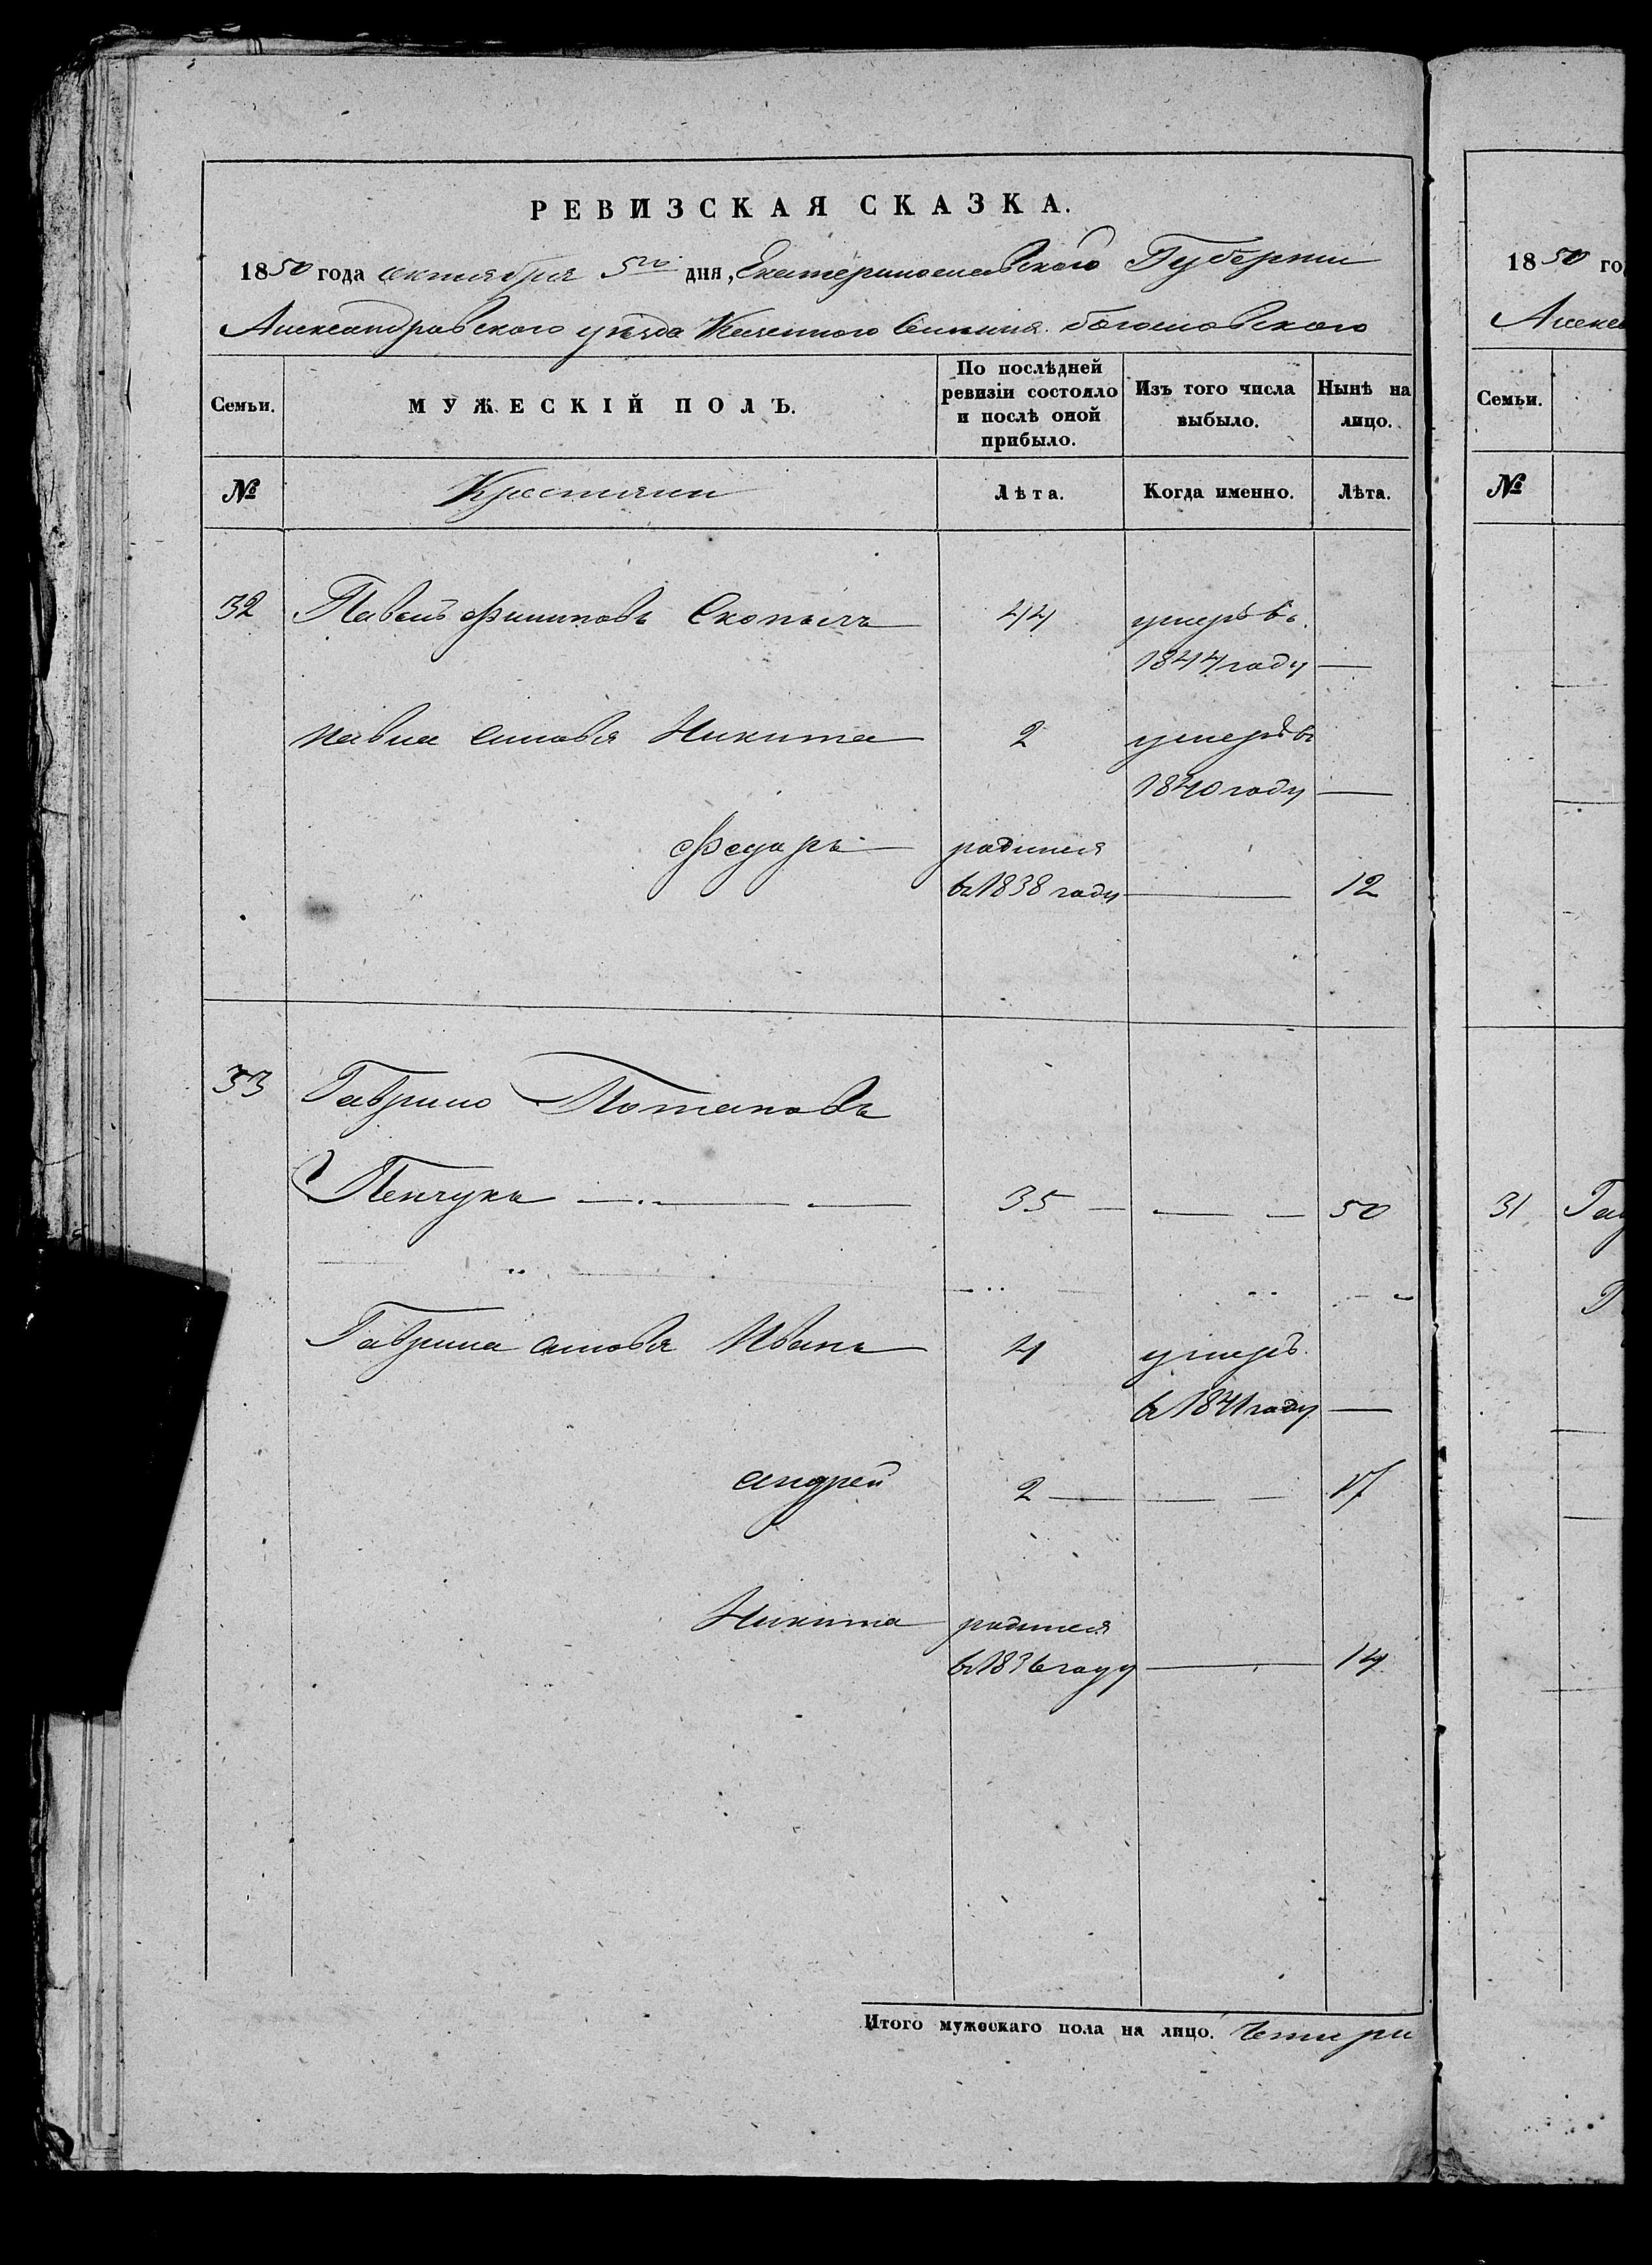 РЕВИЗСКАЯ СКАЗКА.
1850 года октября 5го дня, Екатеринославского Губернии
Александровского уезда Казенного Селения Богословского
Семьи. МУЖЕСКІЙ ПОЛЪ. По послѣдней ревизіи состояло и послѣ оной прибыло. Изъ того числа выбыло. Нынѣ на лицо.
№ Крестяни Лѣта. Когда именно. Лѣта.
32 Павелъ Филиповъ 44 умеръ въ
1844 году —
Павла синовя Никита 2 умеръ въ
1840 году —
Федоръ родился
въ 1838 году — 12
33 Гаврило Потаповъ
Пенчукъ — 35 — 50
Гаврила синовя Иванъ 4 умеръ
въ 1841 году —
Андрей 2 — 17
Никита родился
въ 1836 году — 14
Итого мужескаго пола на лицо. Четири
1850 го
Алекса
Семьи.
№
31 Гав